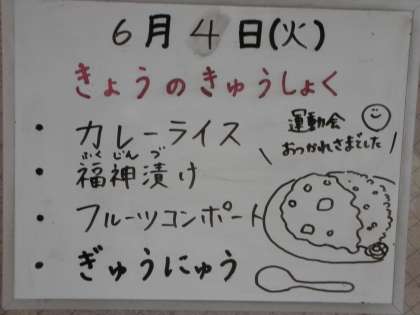 6月4日(火)
きょうのきゅうしょく
・カレーライス
ふくじんづ
・福神漬け
・フルーツコンポート
・ぎゅうにゅう
運動会
おつかれさまでした